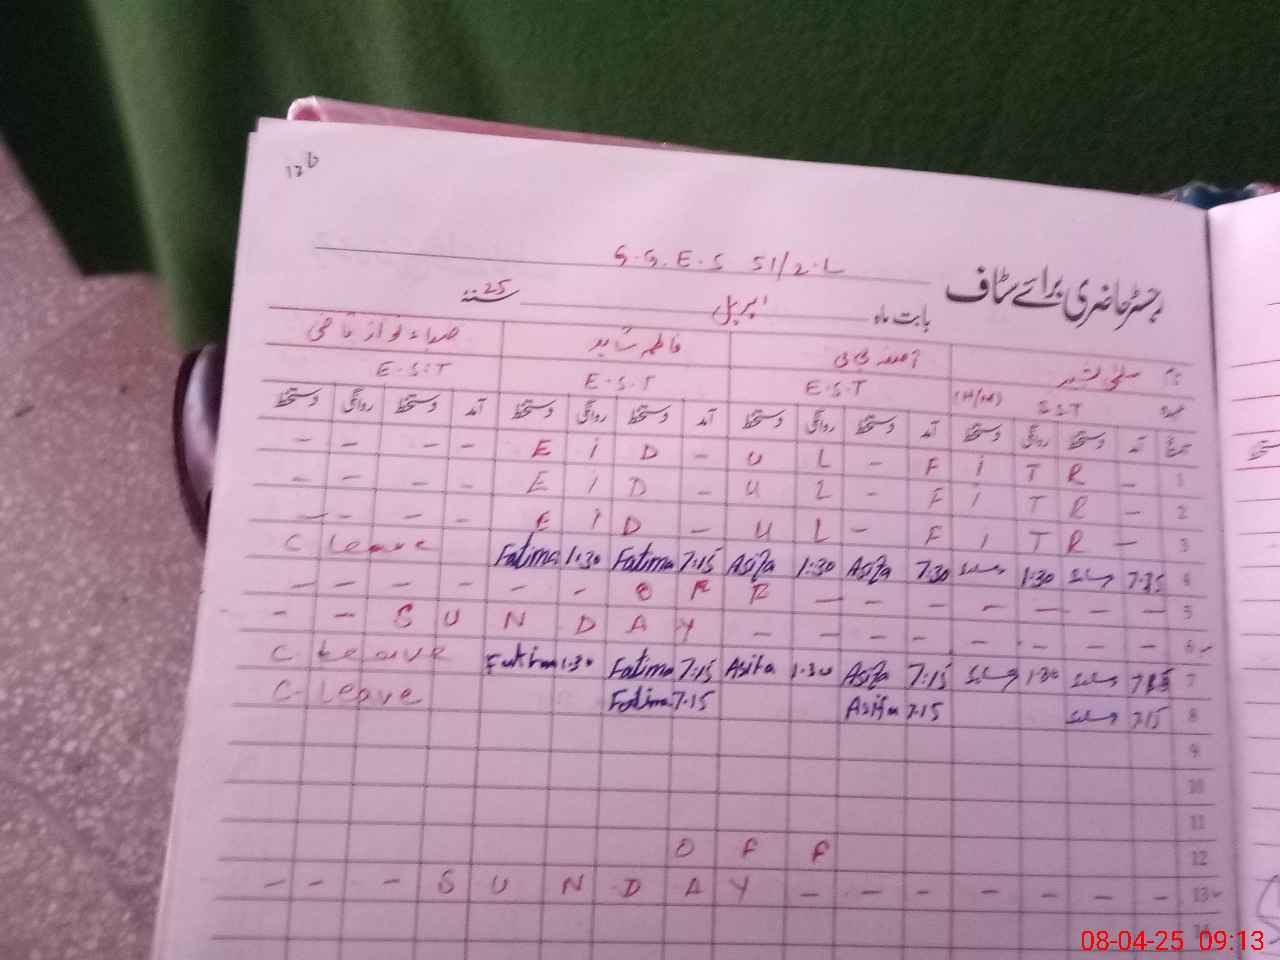 126
G.G.E.S 51/2.L
رجسٹر حاضری برائے سٹاف
بابت ماہ اپریل سنہ 25
نام فاطمہ
عہدہ S.S.T (H/M) E.S.T E.S.T E.S.T
تاریخ آمد دستخط روانگی دستخط آمد دستخط روانگی دستخط آمد دستخط روانگی دستخط آمد دستخط روانگی دستخط
- - - - E I D - U L - F I T R - 1
- - - - E I D - U L - F I T R - 2
- - - - E I D - U L - F I T R - 3
C leave Fatima 1:30 Fatima 7:15 Asifa 1:30 Asifa 7:30 1:30 7:15 4
- - - - - - O F F - - - - - - - 5
- - S U N D A Y - - - - - - - 6
C leave Fatima 1:30 Fatima 7:15 Asifa 1:30 Asifa 7:15 1:30 7:15 7
C leave Fatima 7:15 Asifa 7:15 7:15 8
9
10
11
O F F 12
- - - S U N D A Y - - - - - - 13
14
08-04-25 09:13